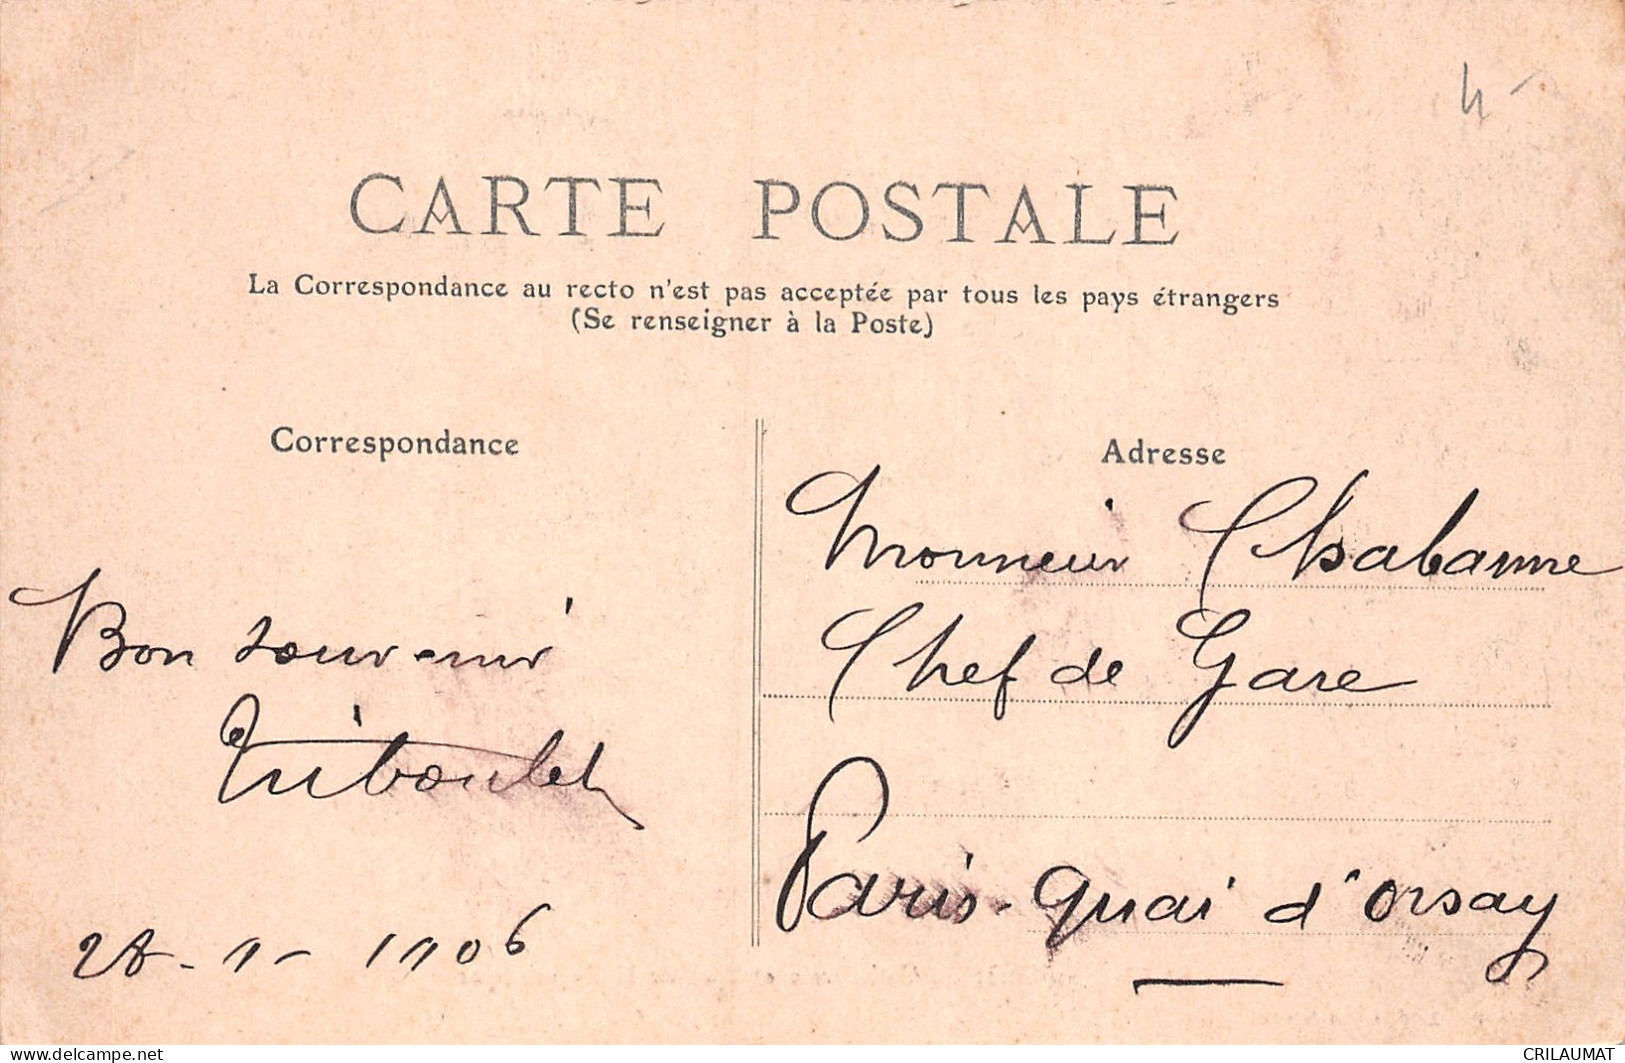 4-
CARTE POSTALE
La Correspondance au recto n'est pas acceptée par tous les pays étrangers
(Se renseigner à la Poste)
Correspondance
Bon souvenir
Triboulet
28-1-1906
Adresse
Monsieur Chabanne
Chef de Gare
Paris-Quai d'Orsay
www.delcampe.net
CRILAUMAT